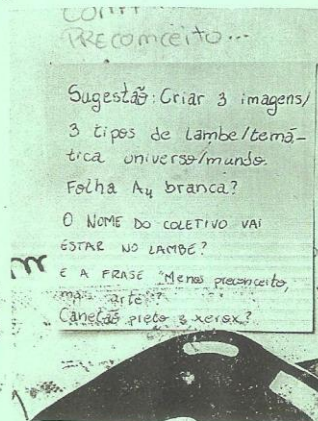 PRECONCEITO...
Sugestão: Criar 3 imagens/
3 tipos de lambe/temá-
tica universo/mundo.
Folha A4 branca?
O NOME DO COLETIVO VAI
ESTAR NO LAMBE?
E A FRASE "Menos preconceito,
mais arte"?
Canetão preto e xerox?